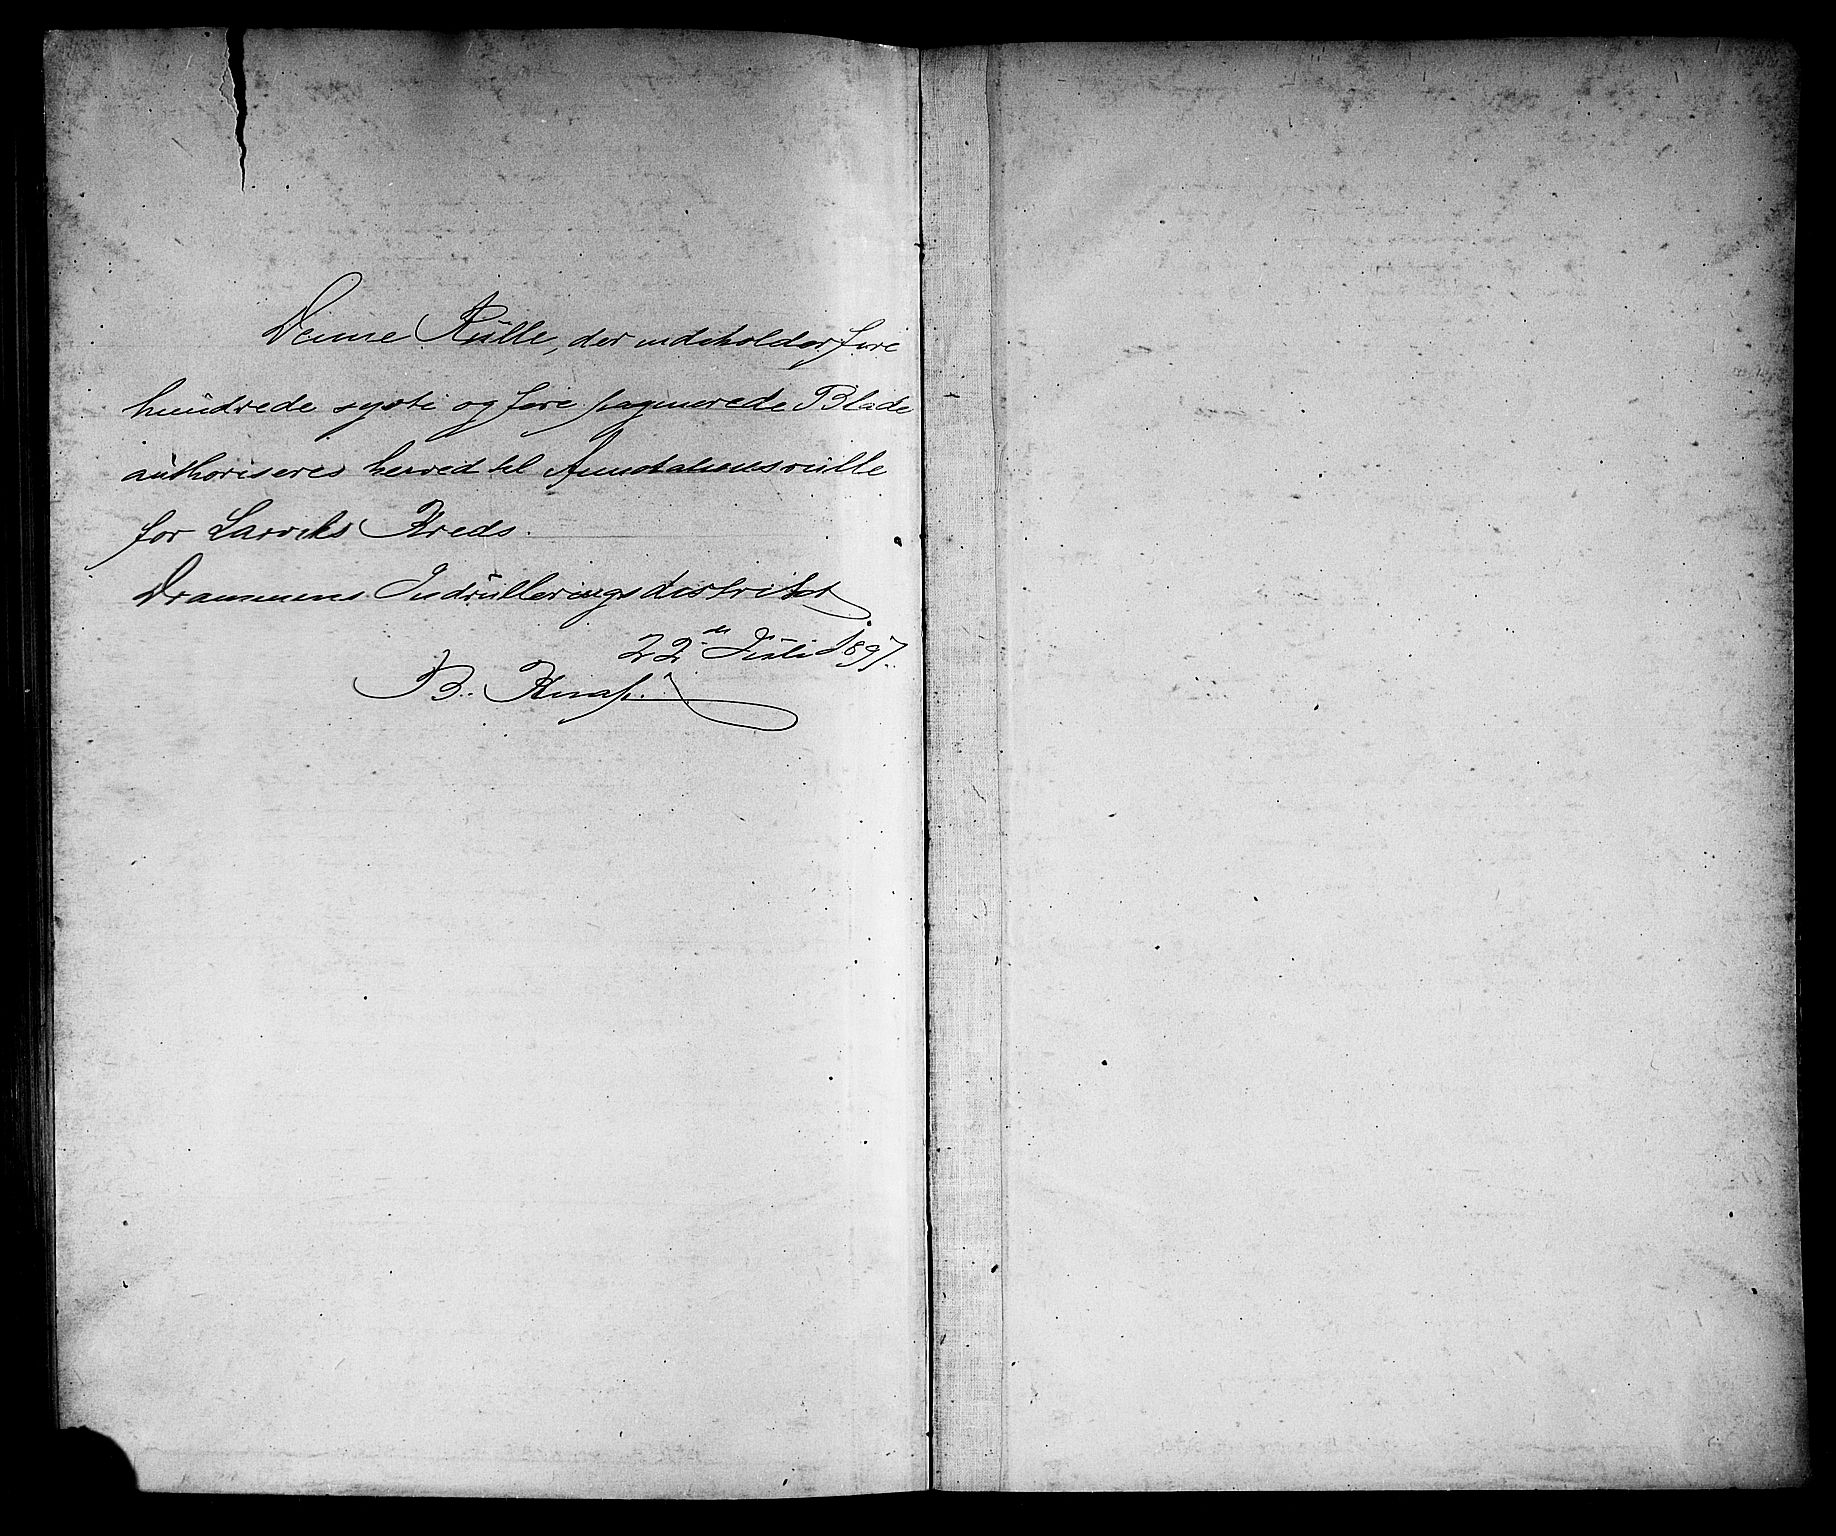 Denne Rulle, der indeholder fire
hundrede syvti og fire paginerede Blade
authoriseres herved til Annotationsrulle
for Larviks Kreds.
Drammens Indrulleringsdistrikt
22de Juli 1897.
B. Knap.